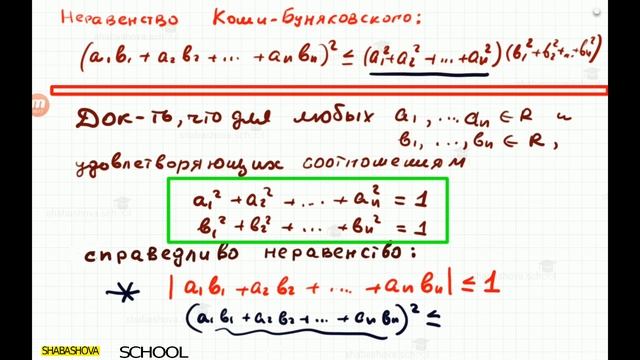 Неравенство Коши-Буняковского:
(a₁b₁ + a₂b₂ + ... + aₙbₙ)² ≤ (a₁² + a₂² + ... + aₙ²)(b₁² + b₂² + ... + bₙ²)
Док-ть, что для любых a₁, ... aₙ ∈ R и
b₁, ..., bₙ ∈ R,
удовлетворяющих соотношениям
a₁² + a₂² + ... + aₙ² = 1
b₁² + b₂² + ... + bₙ² = 1
справедливо неравенство:
* |a₁b₁ + a₂b₂ + ... + aₙbₙ| ≤ 1
(a₁b₁ + a₂b₂ + ... + aₙbₙ)² ≤
SHABASHOVA SCHOOL